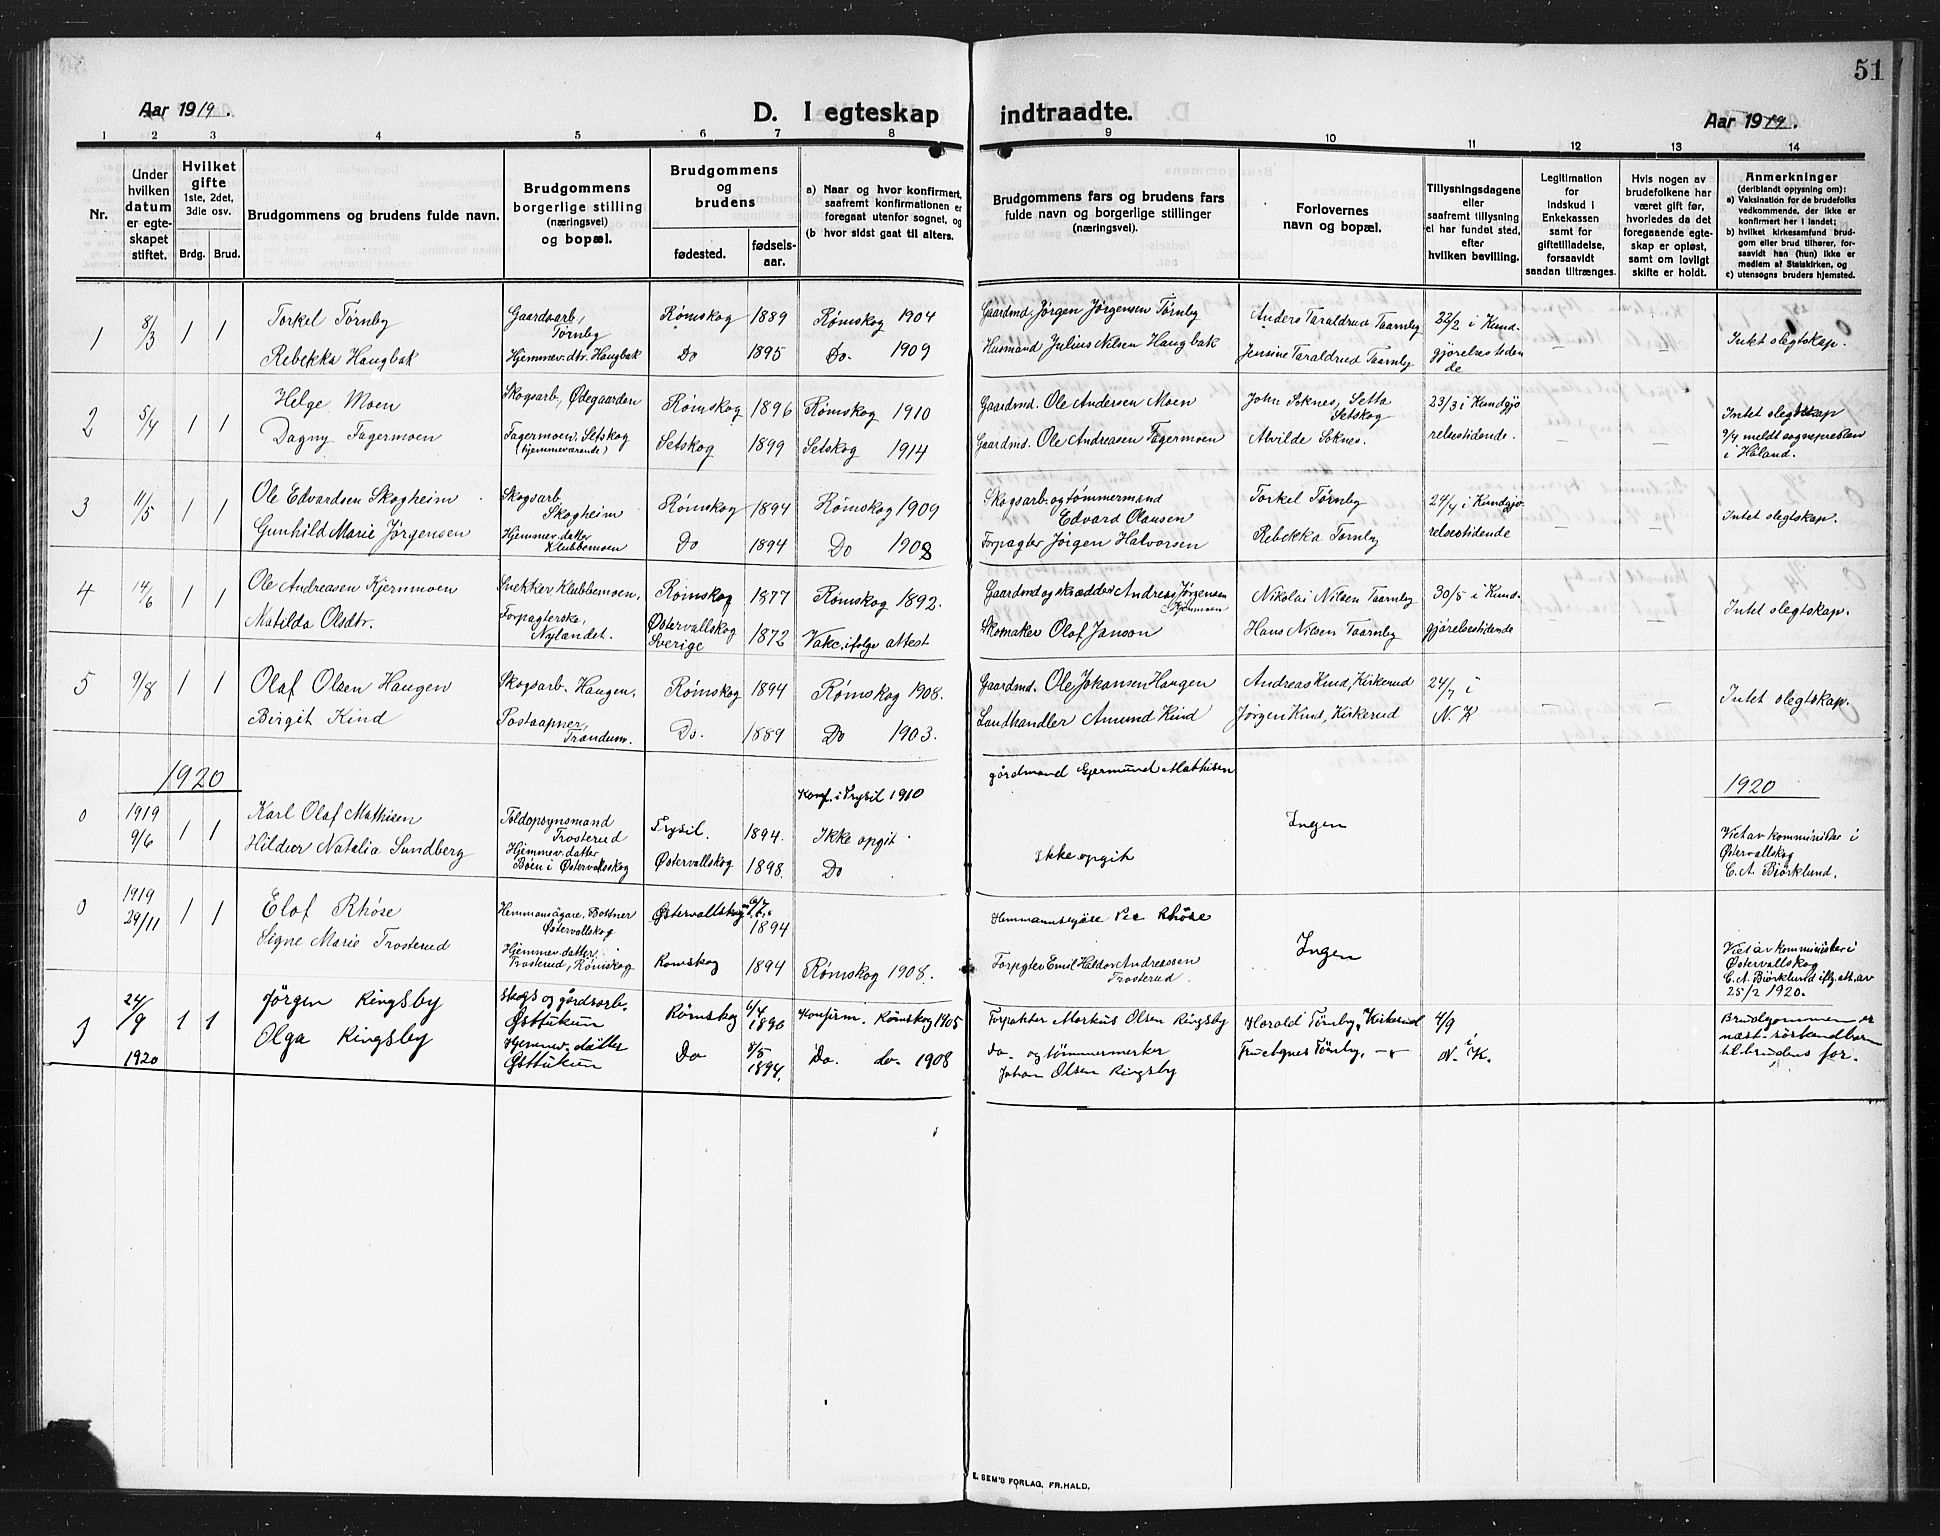 51
Aar 1919.
D. I egteskap indtraadte.
Aar 1919.
1 2 3 4 5 6 7 8 9 10 11 12 13 14
Nr.
Under hvilken datum er egteskapet stiftet.
Hvilket gifte 1ste, 2det, 3die osv.
Brdg. Brud.
Brudgommens og brudens fulde navn.
Brudgommens borgerlige stilling (næringsvei) og bopæl.
Brudgommens og brudens
fødested.
fødselsaar.
a) Naar og hvor konfirmert, saafremt konfirmationen er foregaat utenfor sognet, og
(b hvor sidst gaat til alters.
Brudgommens fars og brudens fars fulde navn og borgerlige stillinger (næringsvei).
Forlovernes navn og bopæl.
Tillysningsdagene eller saafremt tillysning ei har fundet sted, efter hvilken bevilling.
Legitimation for indskud i Enkekassen samt for giftetilladelse, forsaavidt saadan tiltrænges.
Hvis nogen av brudefolkene har været gift før, hvorledes da det foregaaende egteskap er opløst, samt om lovligt skifte er holdt.
Anmerkninger (deriblandt oplysning om):
a) Vaksination for de brudefolks vedkommende, der ikke er konfirmert her i landet;
b) hvilket kirkesamfund brudgom eller brud tilhører, forsaavidt han (hun) ikke er medlem af Statskirken, og
c) utensogns bruders hjemsted.
1 8/3 1 1 Torkel Tørnby Gaardsarb., Tørnby Rømskog 1889 Rømskog 1904 Gaardmd. Jørgen Jørgensen Tørnby Anders Taraldrud Taarnby 22/2 i Kund- — —
Rebekka Haugbak Hjemmev. dtr. Haugbak Do 1895 Do. 1909 Husmand Julius Nilsen Haugbak Jensine Taraldrud Taarnby gjørelsestiden de Intet slegtskap.
2 5/4 1 1 Helge Moen Skogsarb., Ødegaarden Rømskog 1896 Rømskog 1910 Gaardmd. Ole Andersen Moen John Soknes, Setta Setskog 23/3 i Kundgjø — — Intet slegtskap
Dagny Fagermoen Fagermoen, Setskog (hjemmeværende) Setskog 1899 Setskog 1914 Gaardmd. Ole Andreasen Fagermoen Alvilde Soknes. relsestidende. 9/4 meldt sognepresten i Høland.
3 11/5 1 1 Ole Edvardsen Skogheim Skogsarb, Skogheim Rømskog 1894 Rømskog 1909 Skogsarb. og tømmermand Edvard Olausen Torkel Tørnby 24/4 i Kundgjø- — —
Gunhild Marie Jørgensen Hjemmev. datter Klubbemoen Do 1894 Do 1908 Forpagter Jørgen Halvorsen Rebekka Tørnby relsestidende Intet slegtskap.
4 14/6 1 1 Ole Andreasen Kjernmoen Snekker, Klubbemoen, Rømskog 1877 Rømskog 1892. Gaardmd og skrædder Andreas Jørgensen Kjernmoen Nikolai Nilsen Taarnby 30/5 i Kund- — —
Matilda Olsdtr. Forpagterske, Nylandet. Østervallskog Sverige 1872 Vakc. ifølge attest Skomaker Olof Janson Hans Nilsen Taarnby gjørelsestidende Intet slegtskap.
5 9/8 1 1 Olaf Olsen Haugen Skogsarb. Haugen. Rømskog 1894 Rømskog 1908. Gaardmd. Ole Johansen Haugen Andreas Kind, Kirkerud 24/7 i — —
Birgit Kind Postaapner, Trandum. Do. 1889 Do 1903. Landhandler Amund Kind Jørgen Kind, Kirkerud N. K Intet slegtskap.
1920 1920
0 1919 9/6 1 1 Karl Olaf Mathisen Toldopsynsmand Trosterud Trysil. 1894. Konf. i Trysil 1910 Ikke opgit gårdmand Gjermund Mathisen Ingen
Hildur Natalia Sundberg Hjemmev. datter Bøen i Østervallskog Østervallskog 1898. Do Ikke opgit Viet av kommunister i Østervallskog C. A. Bjørklund.
0 1919 29/11 1 1 Elof Rhöse Hemmansägare, Bottner Østervallskog Østervallskog 1894 Hemmansejäre Per Rhöse Ingen
Signe Marie Trosterud Hjemmev. datter Trosterud, Rømskog Romskog 1894 Rømskog 1908. Forpagter Emil Haldor Andreassen Trosterud. Viet av kommunister i Østervallskog C. A. Bjørklund ifg. att. av 25/2 1920.
24/9 1920 1 1 Jørgen Ringsby skogs og gårdsarb. Østtukun Rømskog 6/4 1890 Konfirm. Rømskog 1905 Forpakter Markus Olsen Ringsby Harald Tørnby, Kirkerud 4/9 i N. K.
Olga Ringsby Hjemmev. datter Østtukun Do 8/5 1894. Do. do. 1908 do. og tømmermerker Johan Olsen Ringsby Fru Agnes Tørnby, — Brudgommen er næst-søskendbarn til brudens far.
E. SEM'S FORLAG, FR.HALD.